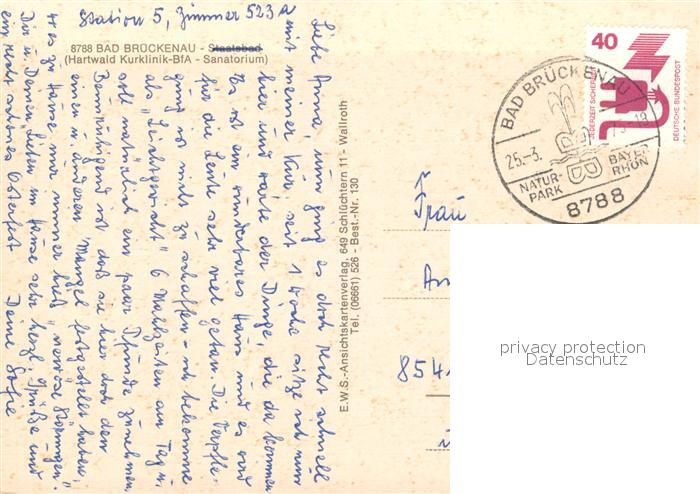 Station 5, Zimmer 523 a
8788 BAD BRÜCKENAU - Staatsbad
(Hartwald Kurklinik-BfA - Sanatorium)
Liebe Anna, nun ging es doch recht schnell
mit meiner Kur, seit 1 Woche sitze ich nun
hier und harre der Dinge, die da kommen
Es ist ein wunderbares Haus und es wird
für die Leute sehr viel getan. Die Verpfle-
gung ist nicht zu schaffen - ich bekomme
als "Leichtgewicht" 6 Mahlzeiten am Tag u.
soll natürlich ein paar Pfunde zunehmen.
Beruhigend ist daß sie hier doch den
einen u. anderen Mangel festgestellt haben,
was zu Hause nur immer hieß "nervöse Störungen".
Dir u. Deinen Lieben im Hause sehr herzl. Grüße und
ein recht schönes Osterfest Deine Sofie
E.W.S.-Ansichtskartenverlag, 649 Schlüchtern 11 - Wallroth
Tel. (06661) 526 - Best.-Nr. 130
40
JEDERZEIT SICHERHEIT
DEUTSCHE BUNDESPOST
BAD BRÜCKENAU
25.-3.
-18
NATUR-
PARK
BAYER.
RHÖN
8788
Frau
An
854
privacy protection
Datenschutz